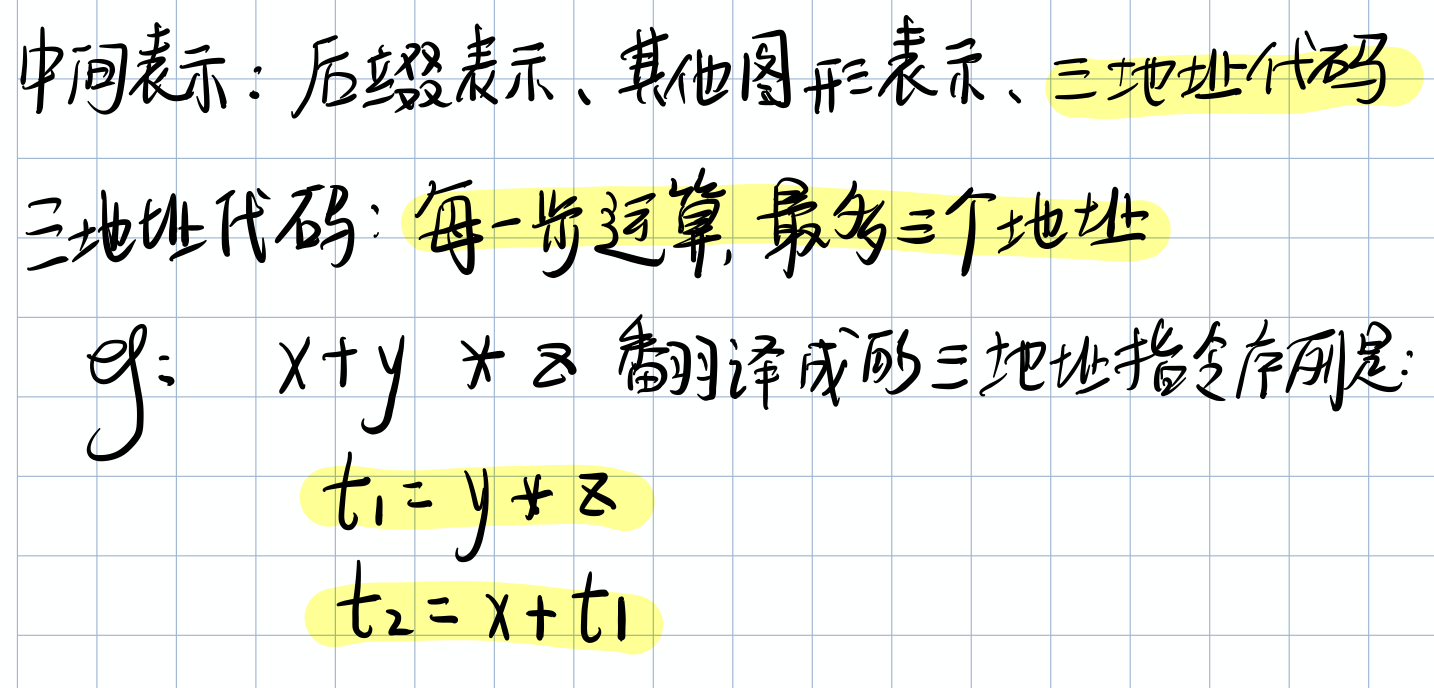 中间表示：后缀表示、其他图形表示、三地址代码
三地址代码：每一步运算，最多三个地址
eg: x+y * z 翻译成的三地址指令序列是：
t₁= y * z
t₂= x+t₁